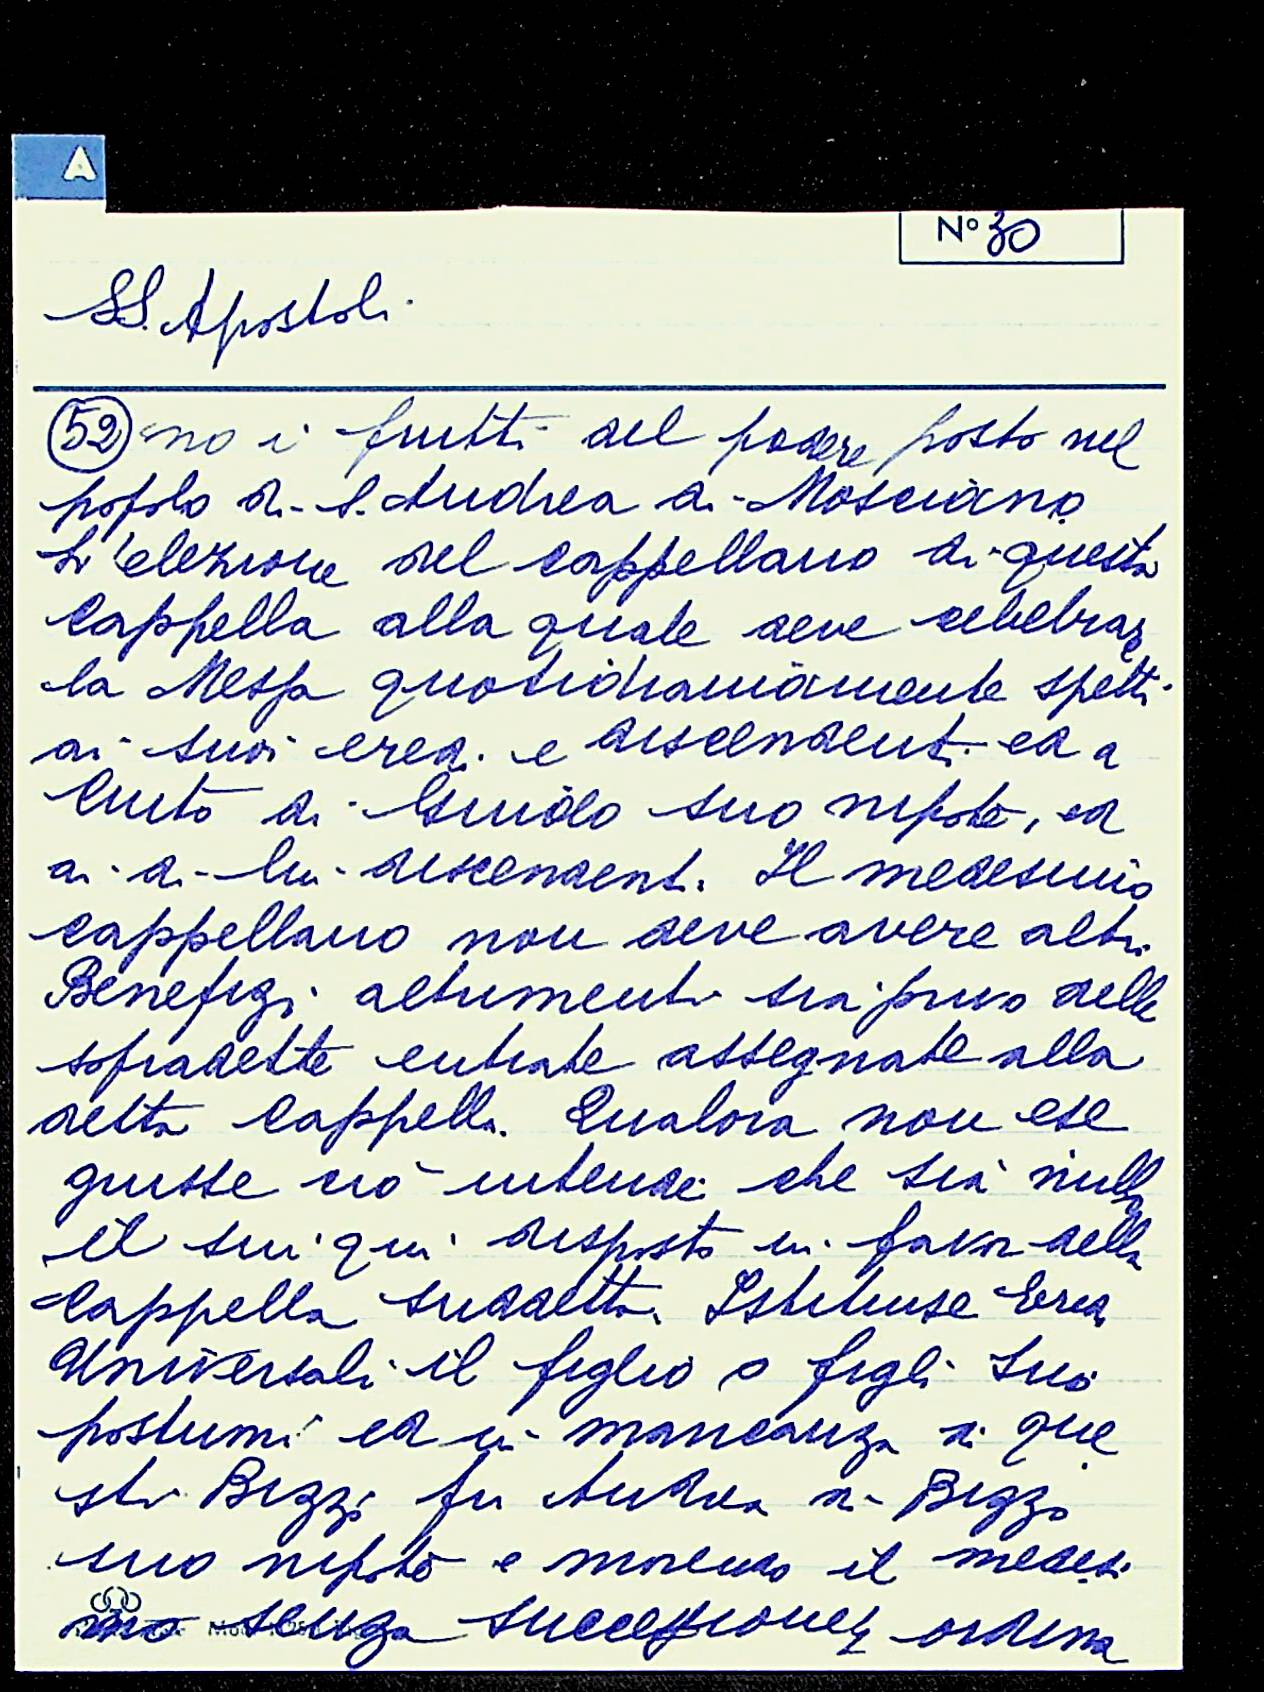 A
Nº 30
SS. Apostoli
52 no i frutti del podere posto nel
popolo di S. Andrea a Mosciano.
L'elezione del cappellano di questa
Cappella alla quale deve celebrare
la Messa quotidianiamente spetti
ai suoi eredi e discendenti ed a
di Guido suo nipote, ed
ai di lui discendenti. Il medesimo
cappellano non deve avere altri
Benefizi altrimenti sia privo delle
sopradette entrate assegnate alla
detta Cappella. Qualora non ese
guisse ciò intende che sia nullo
il sin qui disposto in favor della
Cappella suddetta. Istituisce Eredi
Universali il figlio o figli suoi
postumi ed in mancanza di que
sti Bizzi fu Andrea di Bizzo
suo nipote e morendo il medesi
mo senza successione, ordina